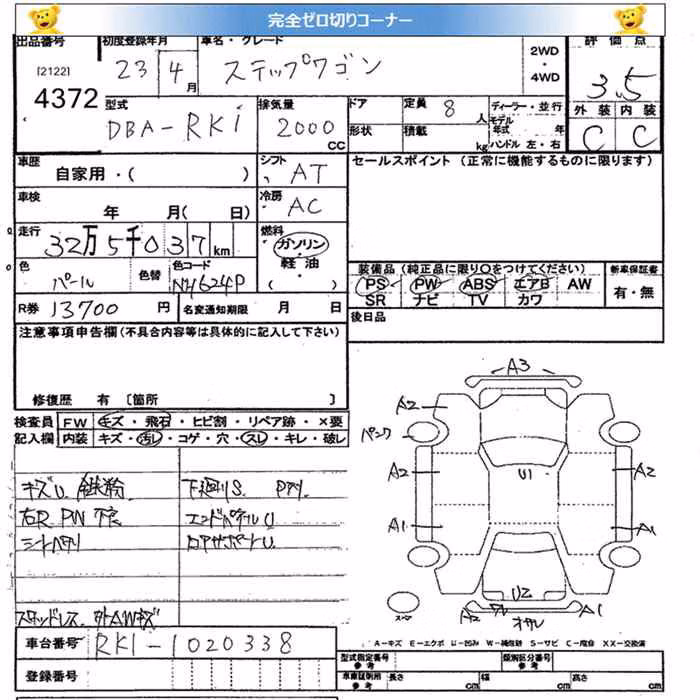 完全ゼロ切りコーナー
出品番号
[2122]
4372
初度登録年月
23 年 4 月
車名・グレード
ステップワゴン
2WD
・
4WD
評価点
3.5
外装 内装
C C
型式
DBA-RK1
排気量
2000
CC
ドア
定員 8 人
形状
積載 kg
ディーラー・並行
モデル
年式 年
ハンドル 左・右
車歴
自家用・( )
シフト
AT
セールスポイント (正常に機能するものに限ります)
車検
年 月( 日)
冷房
AC
走行
32万5千037km
燃料
ガソリン
軽油
( )
色
パール
色替
色コード
NH624P
装備品 (純正品に限り○をつけてください)
PS PW ABS エアB AW
SR ナビ TV カワ
新車保証書
有・無
R券 13700 円
名変通知期限 月 日
後日品
注意事項申告欄(不具合内容等は具体的に記入して下さい)
修復歴 有 〔箇所 〕
検査員
記入欄
FW キズ・飛石・ヒビ割・リペア跡・×要
内装 キズ・汚レ・コゲ・穴・スレ・キレ・破レ
キズU
下廻りS
右R PW 不良
エンドパネルU
リアサポートU
スタッドレス 外AWキズ
A3
A2
パンク
A2
U1
A2
A1
A1
U2
A2
ワレ
A1
スペア
A-キズ E-エクボ U-凹み W-補修跡 S-サビ C-腐食 XX-交換済
車台番号 RK1-1020338
登録番号
型式指定番号
参考
類別区分番号
参考
車庫証明用
参考
長さ 幅 高さ